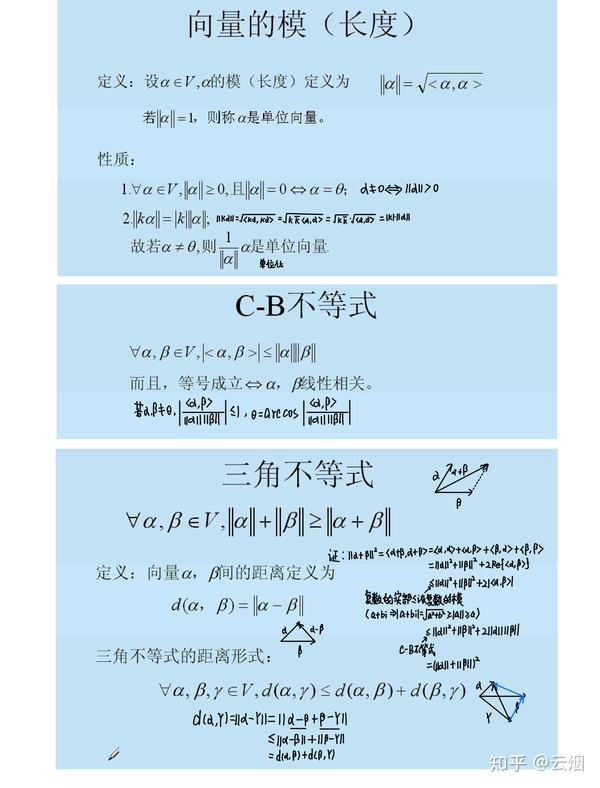 向量的模（长度）
定义：设α∈V,α的模（长度）定义为 ‖α‖=√<α,α>
若‖α‖=1，则称α是单位向量。
性质：
1.∀α∈V,‖α‖≥0,且‖α‖=0⇔α=θ； α≠0⇔‖α‖>0
2.‖kα‖=|k|‖α‖; ‖kα‖=√<kα,kα>=√k k̄<α,α>=√k k̄·√<α,α>=|k|·‖α‖
故若α≠θ,则1/‖α‖ α是单位向量.
单位化
C-B不等式
∀α,β∈V,|<α,β>|≤‖α‖‖β‖
而且，等号成立⇔α，β线性相关。
若α,β≠θ,|<α,β>/‖α‖‖β‖|≤1，θ=arccos|<α,β>/‖α‖‖β‖|
三角不等式
α α+β
β
∀α,β∈V,‖α‖+‖β‖≥‖α+β‖
证：‖α+β‖²=<α+β,α+β>=<α,α>+<α,β>+<β,α>+<β,β>
=‖α‖²+‖β‖²+2Re[<α,β>]
≤‖α‖²+‖β‖²+2|<α,β>|
复数的实部≤该复数的模
(a+bi⇒|a+bi|=√a²+b²≥|a|≥a)
≤‖α‖²+‖β‖²+2‖α‖‖β‖
C-B不等式
=(‖α‖+‖β‖)²
定义：向量α，β间的距离定义为
d(α，β)=‖α−β‖
α α-β
β
三角不等式的距离形式：
∀α,β,γ∈V,d(α,γ)≤d(α,β)+d(β,γ)
α β
γ
d(α,γ)=‖α-γ‖=‖α-β+β-γ‖
≤‖α-β‖+‖β-γ‖
=d(α,β)+d(β,γ)
知乎 @云烟